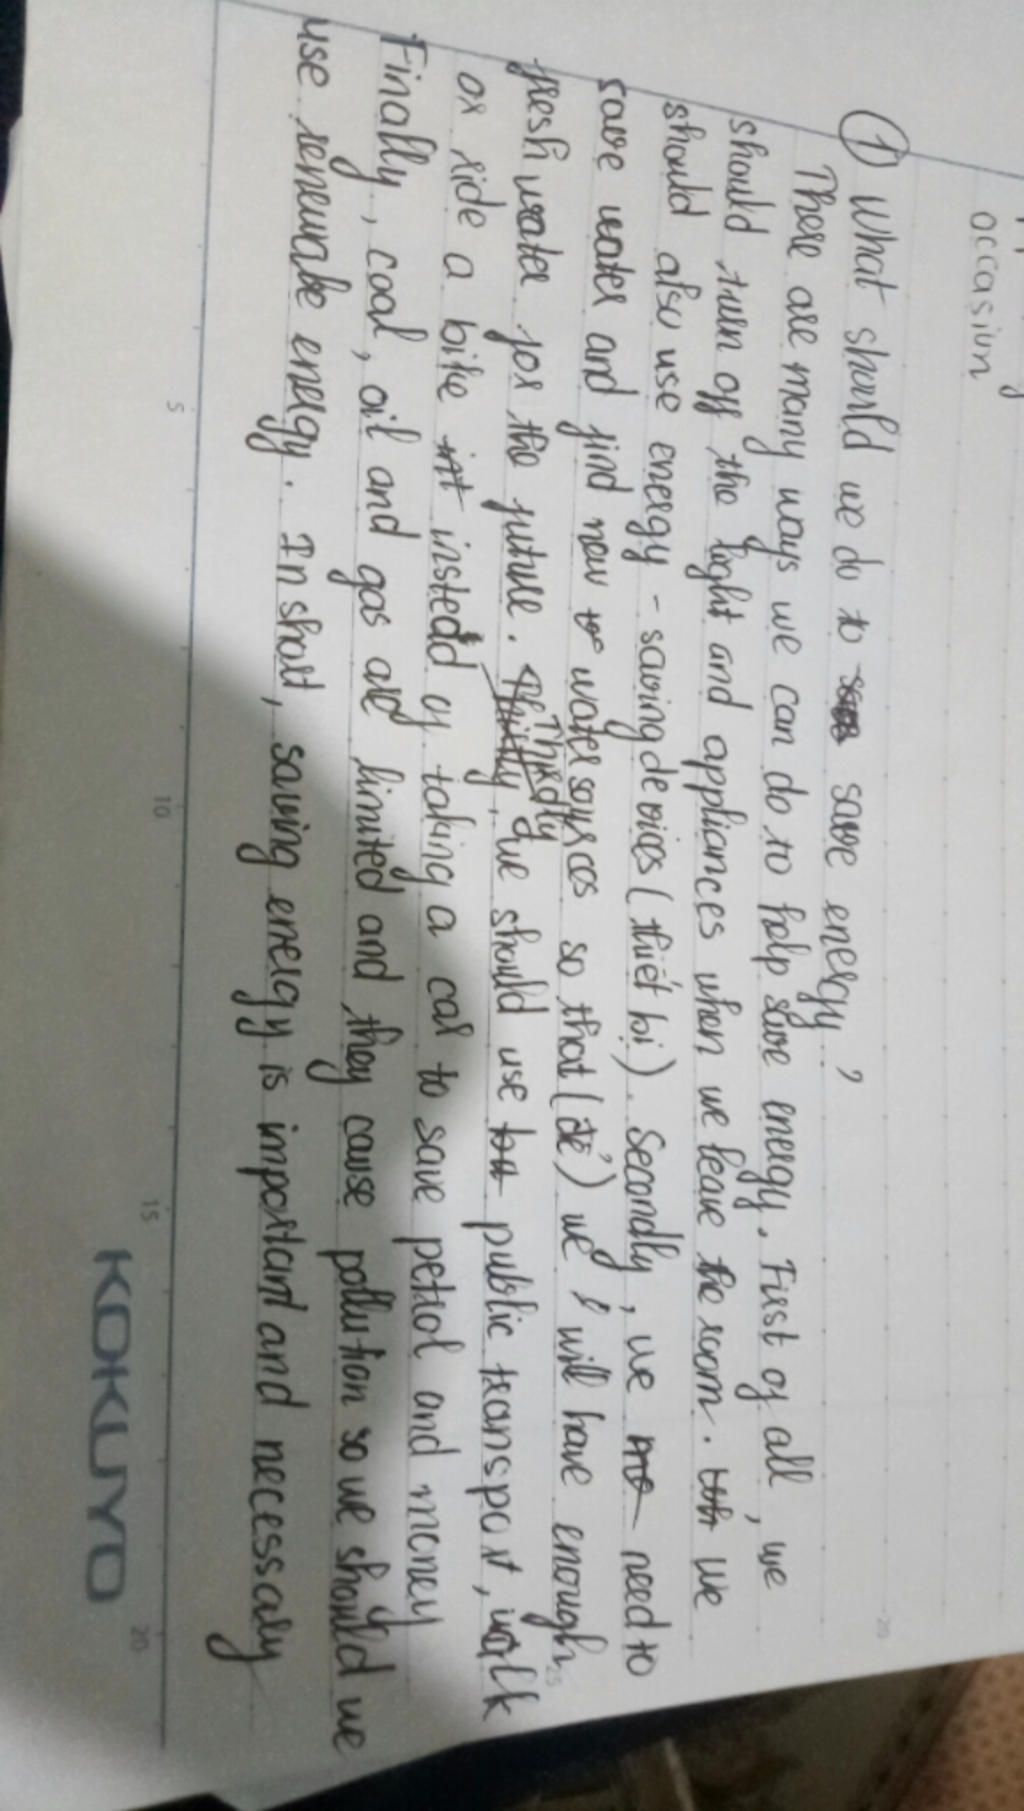 occasion
① What should we do to save energy?
There are many ways we can do to help save energy. First of all, we
should turn off the light and appliances when we leave the room. we
should also use energy - saving devices (thiết bị). Secondly, we need to
save water and find new water sources so that (để) we will have enough
fresh water for the future. Thirdly, we should use public transport, walk
or ride a bike instedd of taking a car to save petrol and money
Finally, coal, oil and gas are limited and they cause pollution so we should we
use renewabe energy. In short, saving energy is important and necessary
5 10 15 20
KOKUYO